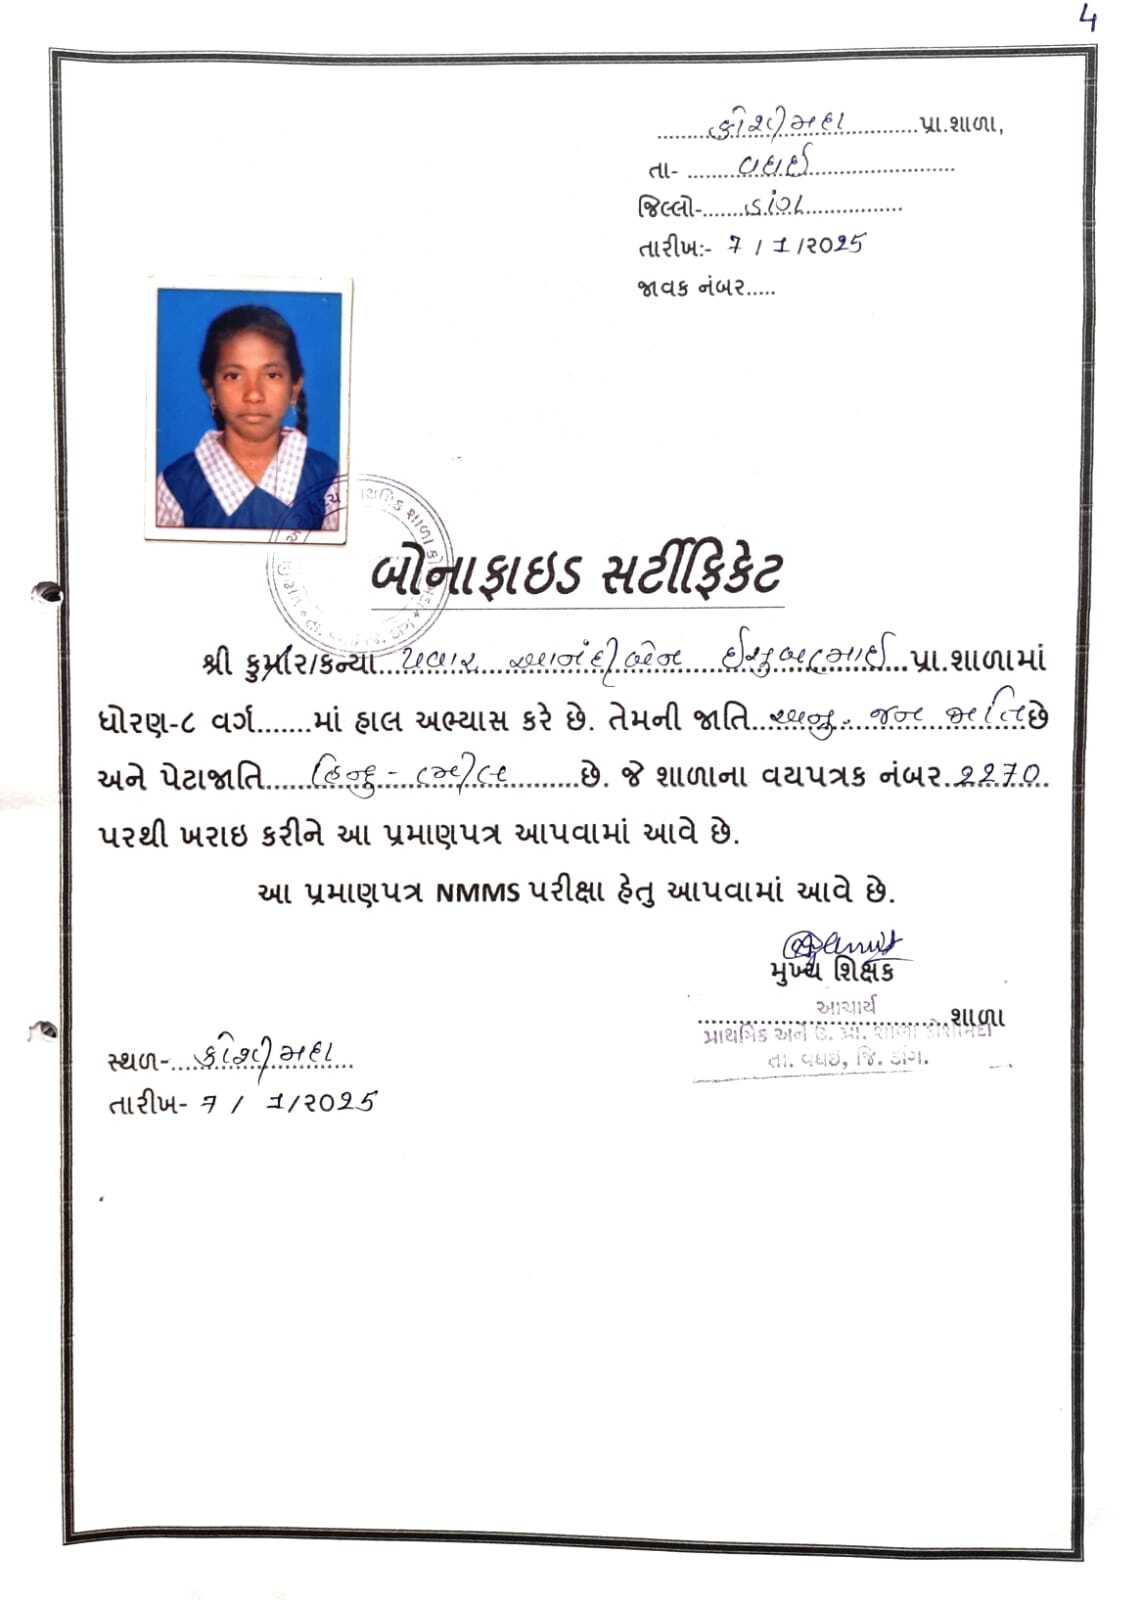 4
કોશીમદા પ્રા.શાળા,
તા- વઘઈ
જિલ્લો- ડાંગ
તારીખ:- 7 / 1 /૨૦25
જાવક નંબર.....
બોનાફાઇડ સર્ટીફિકેટ
શ્રી કુમાર/કન્યા પવાર આનંદીબેન ઈસુબભાઈ પ્રા.શાળામાં
ધોરણ-૮ વર્ગ.......માં હાલ અભ્યાસ કરે છે. તેમની જાતિ અનુ. જન જાતિ છે
અને પેટાજાતિ હિન્દુ - ભીલ છે. જે શાળાના વયપત્રક નંબર 2270
પરથી ખરાઇ કરીને આ પ્રમાણપત્ર આપવામાં આવે છે.
આ પ્રમાણપત્ર NMMS પરીક્ષા હેતુ આપવામાં આવે છે.
મુખ્ય શિક્ષક
આચાર્ય
શાળા
પ્રાથમિક અને ઉ. પ્રા. શાળા કોશીમદા
તા. વઘઇ, જિ. ડાંગ.
સ્થળ- કોશીમદા
તારીખ- 7 / 1/૨૦25